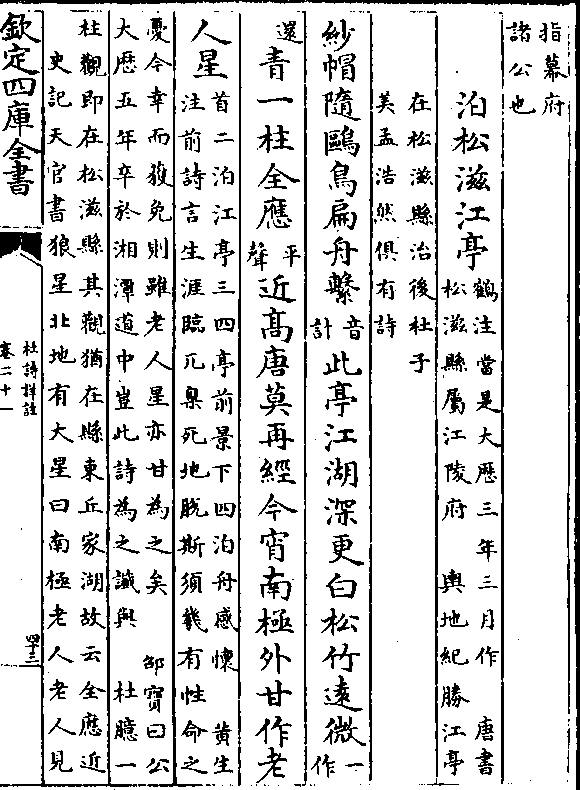 指幕府
諸公也
泊松滋江亭
鶴注當是大歴三年三月作 唐書
松滋縣屬江陵府 輿地紀勝江亭
在松滋縣治後杜子
美孟浩然俱有詩
紗帽隨鷗鳥扁舟繫音計此亭江湖深更白松竹遠微一作
還青一柱全應平聲近髙唐莫再經今宵南極外甘作老
人星
首二泊江亭三四亭前景下四泊舟感懷 黄生
注前詩言生涯臨臬兀死地脱斯須幾有性命之
憂今幸而獲免則雖老人星亦甘為之矣 邵寳曰公
大歴五年卒於湘潭道中豈此詩為之讖與 杜臆一
柱觀即在松滋縣其觀猶在縣東丘家湖故云全應近
史記天官書狼星北地有大星曰南極老人老人見
欽定四庫全書
杜詩詳註
卷二十一
四十三